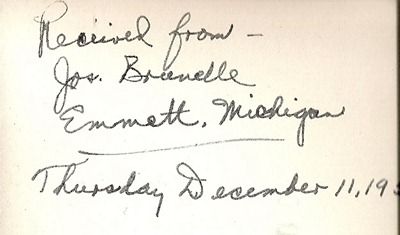 Received from -
Jos. Brunelle
Emmett, Michigan
Thursday December 11, 19